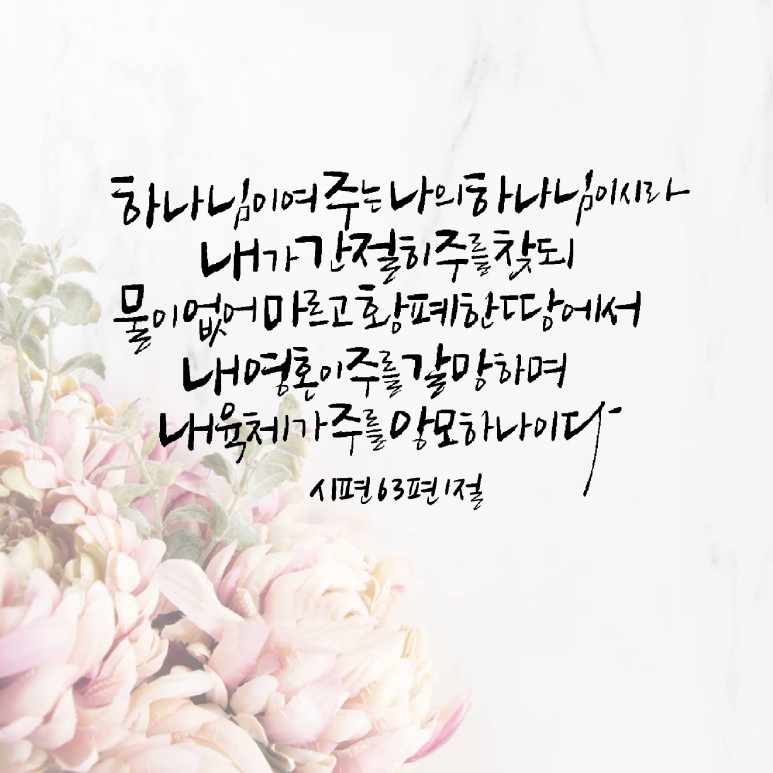 하나님이여 주는 나의 하나님이시라
내가 간절히 주를 찾되
물이 없어 마르고 황폐한 땅에서
내 영혼이 주를 갈망하며
내 육체가 주를 앙모하나이다
시편 63편 1절